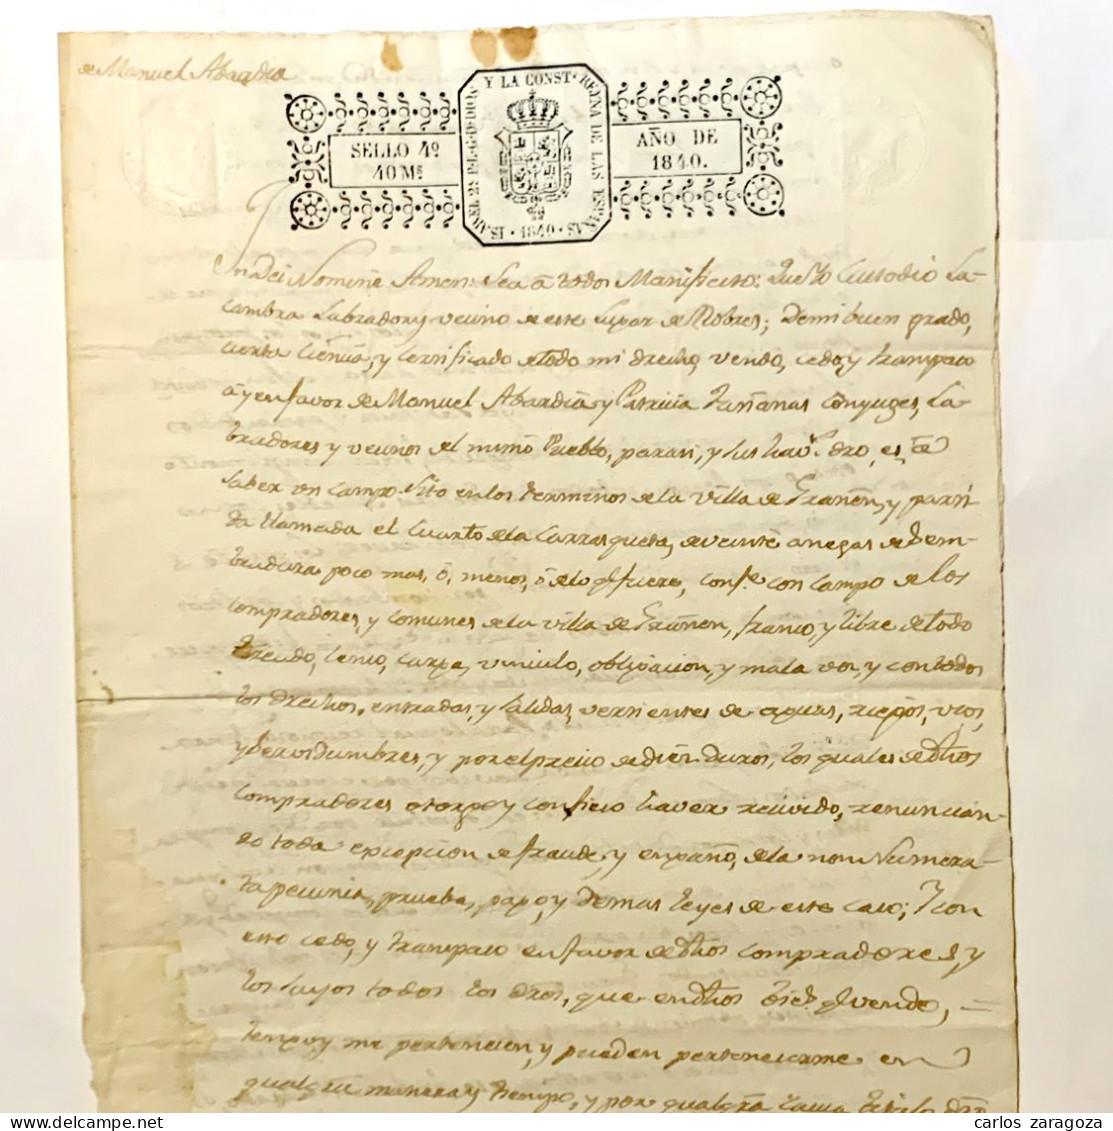 de Manuel Abardia
SELLO 4º
40 Ms
ISABEL 2ª P.L.G.D DIOS Y LA CONST. REYNA DE LAS ESPAÑAS
1840
AÑO DE
1840.
In Dei Nomine Amen: Sea â todos Manifiesto: Que Yo Custodio La-
cambra Labrador y vecino de este Lugar de Robres; De mi buen grado,
cierta Ciencia, y certificado de todo mi drecho, vendo, cedo, y transpaso
â, y en favor de Manuel Abardia y Patricia Tarianas Cônyuges, La-
bradores y vecinos del mismo Pueblo, para si, y sus hav. dro, es â
saber un campo sito en los terminos de la villa de Grañen, y parti-
da llamada el Cuarto de la Carrasqueta, de veinte anegas de sem-
bradura poco mas, ô, menos, ô de lo q fuere, confte con campo de los
compradores, y comunes de la villa de Grañen, franco, y libre de todo
treudo, Censo, carga, vinculo, obligacion, y mala voz, y con todos
los drechos, entradas, y salidas, vertientes de aguas, riegos, usos,
y servidumbres, y por el precio de diez duros, los quales de dhos
compradores otorgo y confieso haver recivido, renuncian-
do toda excepcion de fraude, y engaño, de la non Numera-
ta pecunia, prueba, pago, y demas Leyes de este caso; Y con
esto cedo, y transpaso en favor de dhos compradores, y
los suyos todos los dros, que en dhos q vendo,
tengo y me pertenecen, y pueden pertenecerme en
qualqra manera y tiempo, y por qualqra causa
carlos zaragoza